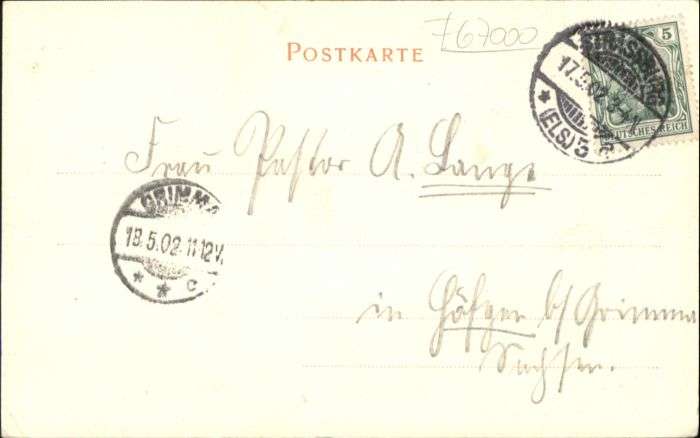 767000
POSTKARTE
STRASSBURG
17.5.02
* (ELS) 5
5
DEUTSCHES REICH
Frau Pastor A. Lange
GRIMMA
18.5.02.11-12V.
* * c
in Höfgen b/Grimma
Sachsen.